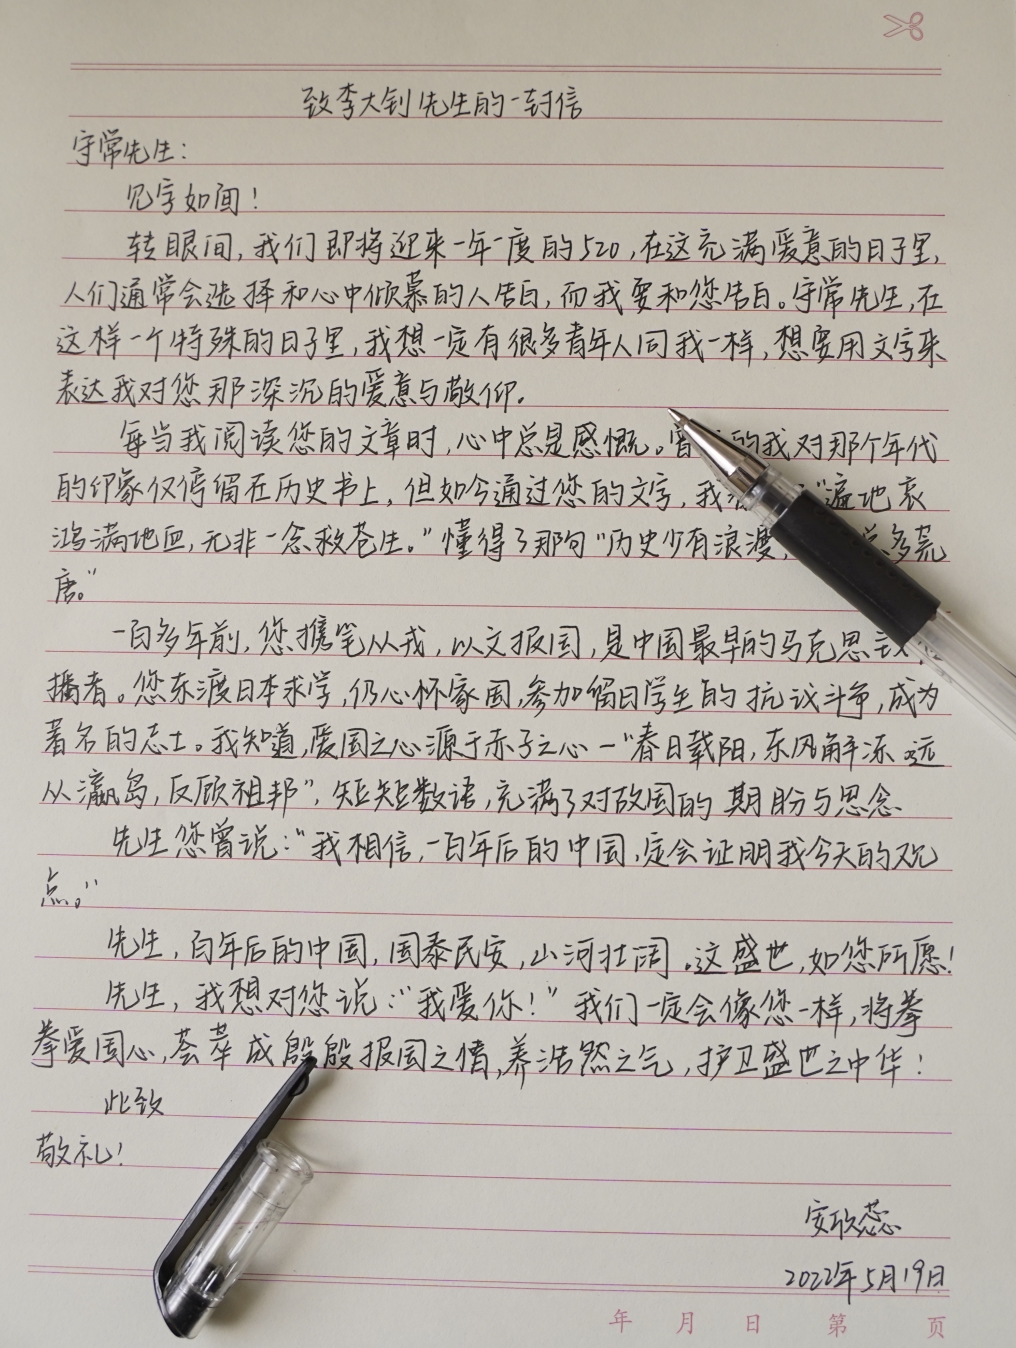 致李大钊先生的一封信
守常先生：
见字如面！
转眼间，我们即将迎来一年一度的520，在这充满爱意的日子里，
人们通常会选择和心中倾慕的人告白，而我要和您告白。守常先生，在
这样一个特殊的日子里，我想一定有很多青年人同我一样，想要用文字来
表达我对您那深沉的爱意与敬仰。
每当我阅读您的文章时，心中总是感慨。曾 的我对那个年代
的印象仅停留在历史书上，但如今通过您的文字，我 "遍地哀
鸿满地血，无非一念救苍生。"懂得了那句"历史少有浪漫， 多荒
唐。"
一百多年前，您携笔从戎，以文报国，是中国最早的马克思主义
播者。您东渡日本求学，仍心怀家国，参加留日学生的抗议斗争，成为
著名的志士。我知道，爱国之心源于赤子之心—"春日载阳，东风解冻 远
从瀛岛，反顾祖邦"，短短数语，充满了对故国的期盼与思念
先生您曾说："我相信，一百年后的中国，定会证明我今天的观
点。"
先生，百年后的中国，国泰民安，山河壮阔。这盛世，如您所愿！
先生，我想对您说："我爱你！"我们一定会像您一样，将拳
拳爱国心，荟萃成殷殷报国之情，养浩然之气，护卫盛世之中华！
此致
敬礼！
安欣蕊
2022年5月19日
年 月 日 第 页